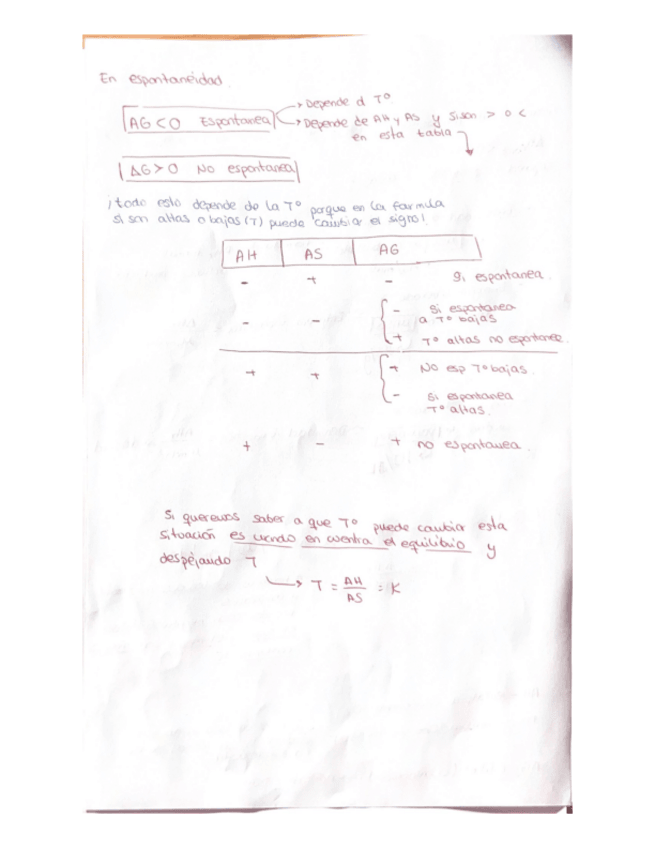 En espontaneidad.
AG<0 Espontanea → Depende d Tº
→ Depende de AH y AS y si son > 0 <
en esta tabla
AG>0 No espontanea
¡todo esto depende de la Tº porque en la formula
si son altas o bajas (T) puede cambiar el signo!
AH AS AG
- + - Si espontanea
- - - Si espontanea
a Tº bajas
+ Tº altas no espontanea.
+ + + No esp Tº bajas.
- Si espontanea
Tº altas.
+ - + no espontanea.
Si queremos saber a que Tº puede cambiar esta
situación es en cuentra el equilibrio y
despéjando T
→ T = AH/AS = K